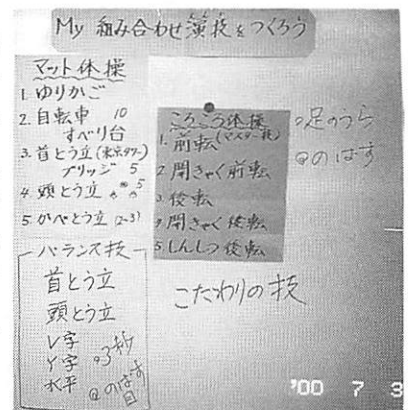 My 組み合わせ演技をつくろう
マット体操
1. ゆりかご
2. 自転車 10
すべり台
3. 首とう立(東京タワー)
ブリッジ 5
4. 頭とう立 5
5. かべとう立 (2~3)
バランス技
首とう立
頭とう立
V字
Y字
水平
3秒
のばす
ころころ体操
1. 前転(マスター技)
2 開きゃく前転
3 後転
4 開きゃく後転
5 しんしつ後転
足のうら
のばす
こだわりの技
'00 7 3